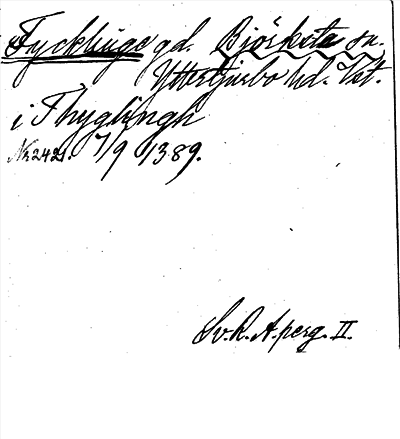 Tycklinge gd. Björksta sn.
Yttertjurbo hd. Vst.
i Thyglingh
No 2421. 7/9 1389.
Sv. R. A. perg. II.